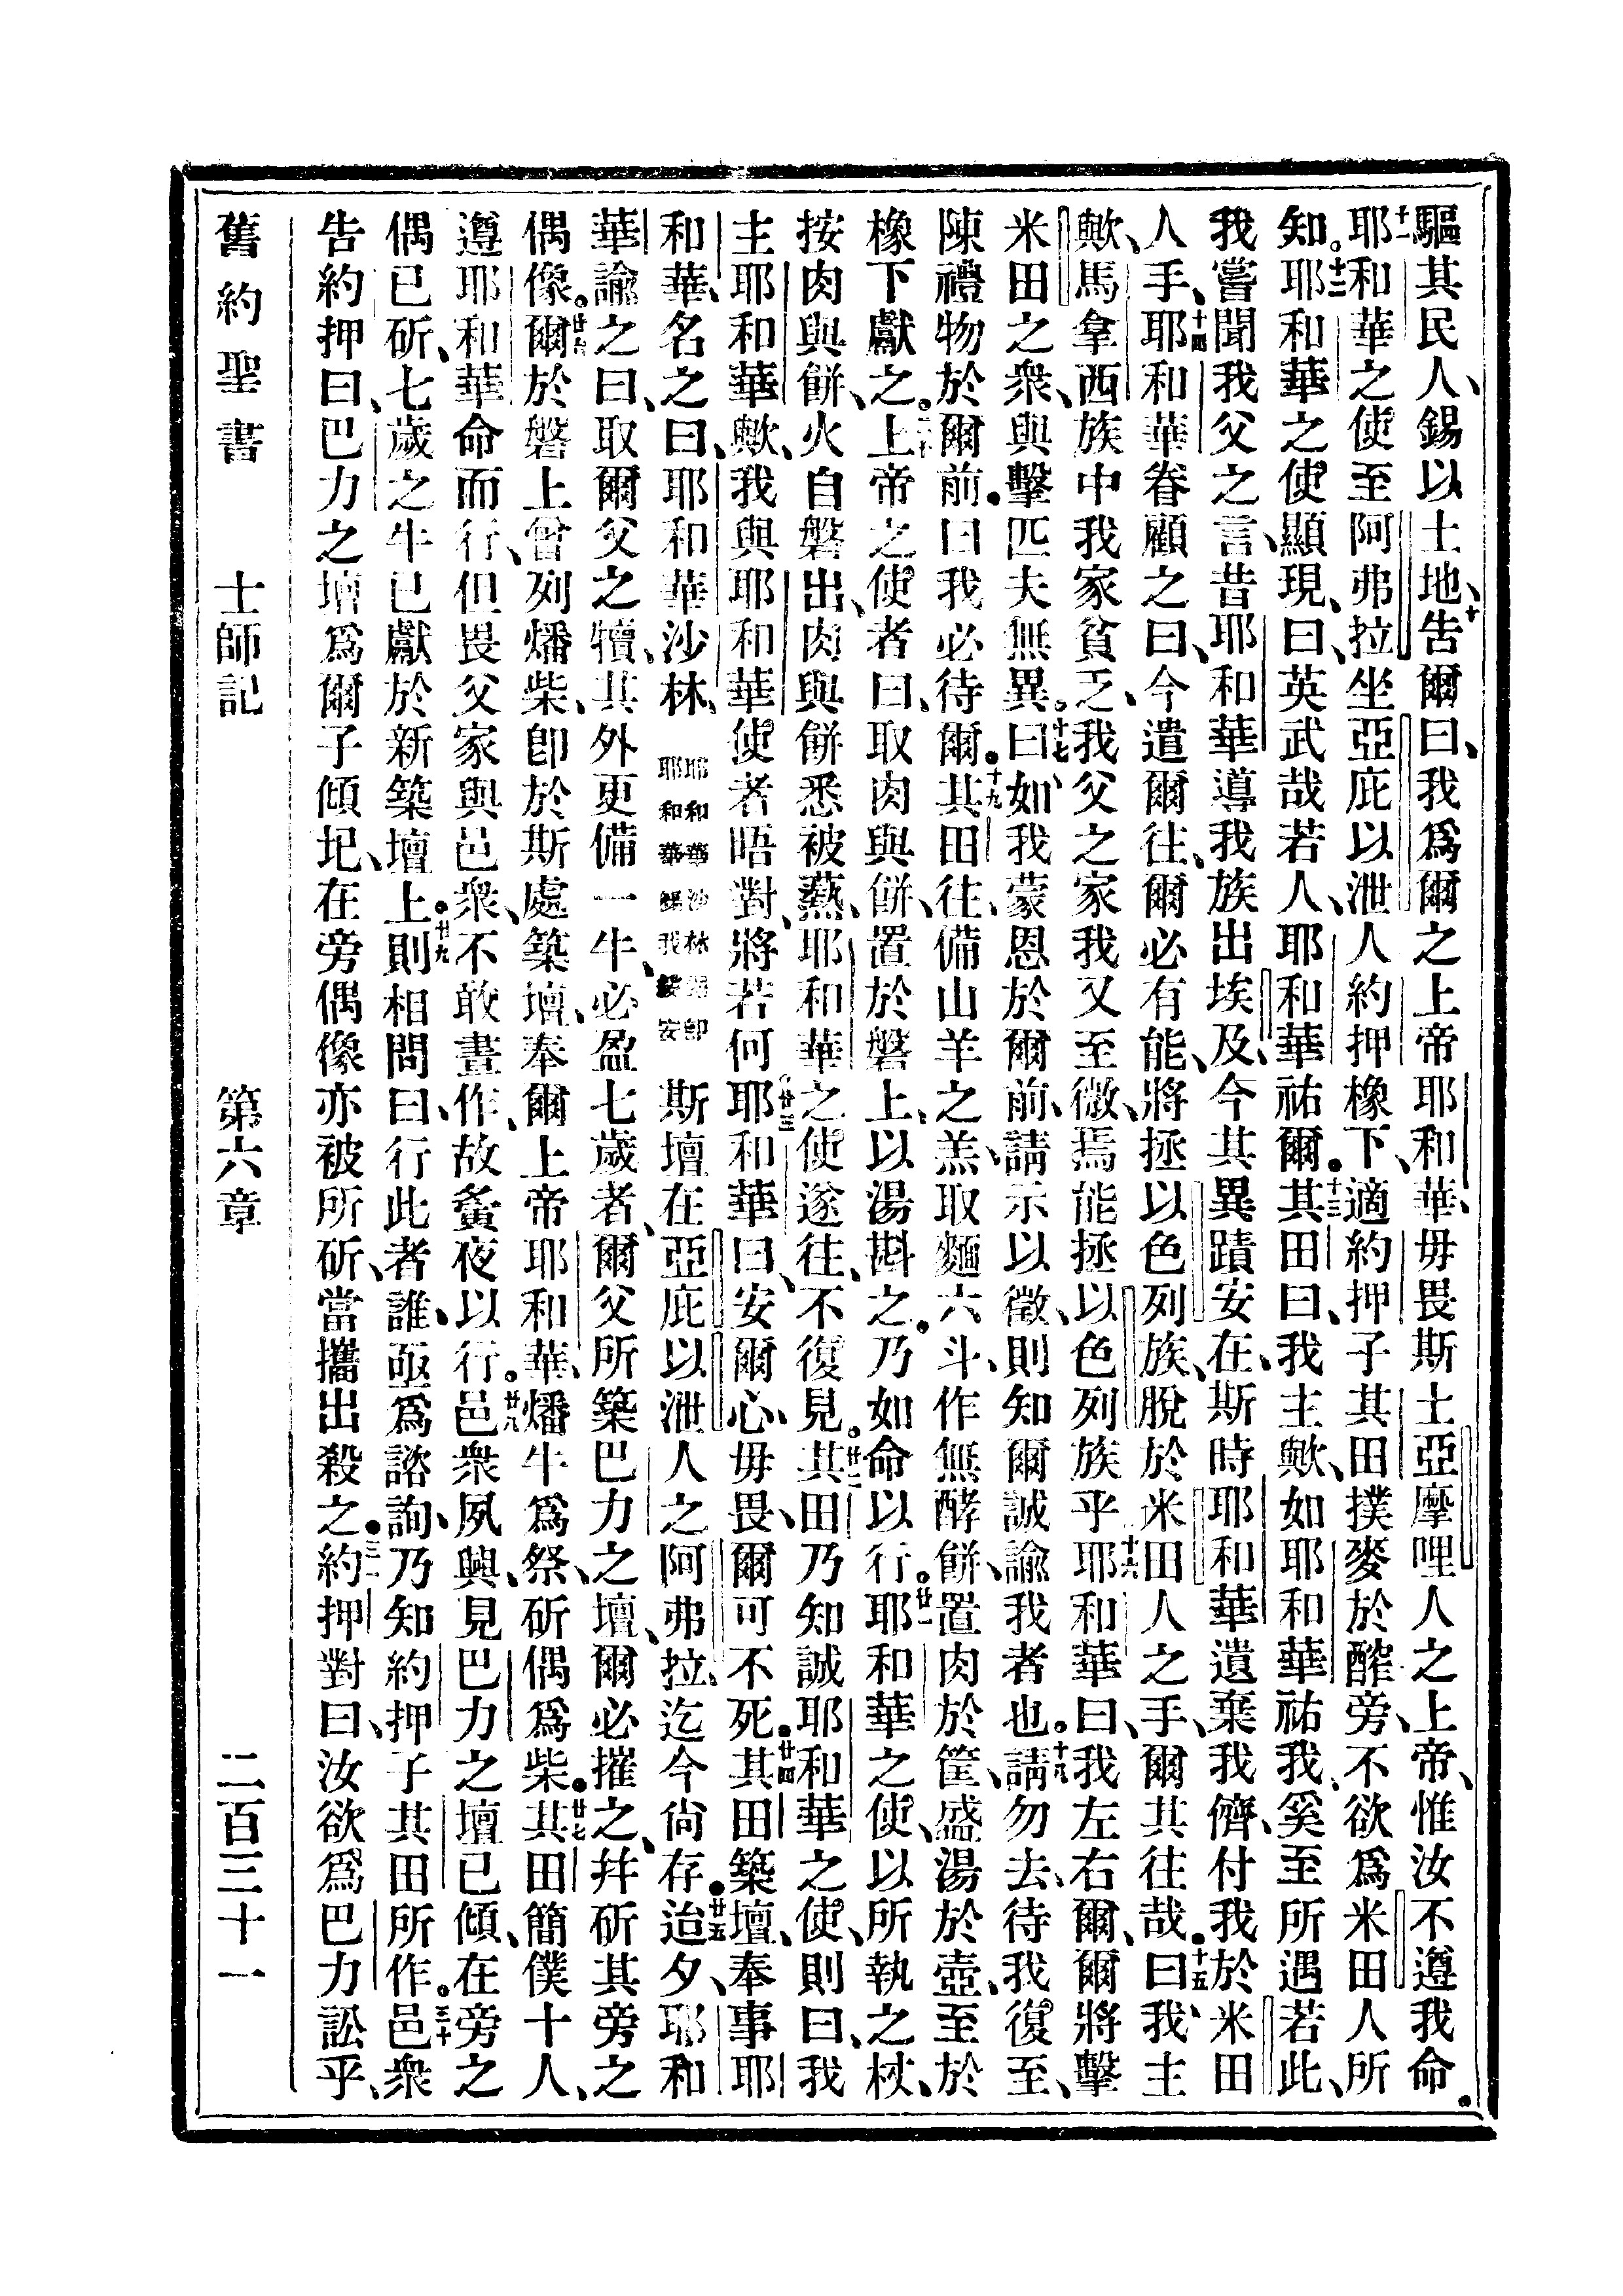 驅其民人、錫以土地、十告爾曰、我爲爾之上帝耶和華、毋畏斯士亞摩哩人之上帝、惟汝不遵我命。
十一耶和華之使至阿弗拉、坐亞庇以泄人約押橡下、適約押子其田撲麥於醡旁、不欲爲米田人所
知。十二耶和華之使顯現、曰、英武哉若人、耶和華祐爾。十三其田曰、我主歟、如耶和華祐我、奚至所遇若此、
我嘗聞我父之言、昔耶和華導我族出埃及、今其異蹟安在、斯時耶和華遺棄我儕、付我於米田
人手、十四耶和華眷顧之曰、今遣爾往、爾必有能、將拯以色列族、脫於米田人之手、爾其往哉。十五曰、我主
歟、馬拿西族中我家貧乏、我父之家我又至微、焉能拯以色列族乎、十六耶和華曰、我左右爾、爾將擊
米田之衆、與擊匹夫無異。十七曰、如我蒙恩於爾前、請示以徵、則知爾誠諭我者也。十八請勿去、待我復至、
陳禮物於爾前。曰我必待爾。十九其田往、備山羊之羔、取麵六斗、作無酵餅、置肉於筐、盛湯於壺、至於
橡下獻之。二十上帝之使者曰、取肉與餅、置於磐上、以湯斟之。乃如命以行。廿一耶和華之使、以所執之杖、
按肉與餅、火自磐出、肉與餅悉被爇、耶和華之使遂往、不復見。廿二其田乃知誠耶和華之使、則曰、我
主耶和華歟、我與耶和華使者晤對、將若何、廿三耶和華曰、安爾心、毋畏、爾可不死。廿四其田築壇、奉事耶
和華、名之曰、耶和華沙林、耶和華沙林譯卽耶和華錫我綏安斯壇在亞庇以泄人之阿弗拉、迄今尙存。廿五迨夕、耶和
華諭之曰、取爾父之犢、其外更備一牛、必盈七歲者、爾父所築巴力之壇、爾必摧之、幷斫其旁之
偶像。廿六爾於磐上、曾列燔柴、卽於斯處築壇、奉爾上帝耶和華、燔牛爲祭、斫偶爲柴。廿七其田簡僕十人、
遵耶和華命而行、但畏父家與邑衆、不敢晝作、故夤夜以行。廿八邑衆夙興、見巴力之壇已傾、在旁之
偶已斫、七歲之牛已獻於新築壇上。廿九則相問曰、行此者誰、亟爲諮詢、乃知約押子其田所作。三十邑衆
告約押曰、巴力之壇爲爾子傾圮、在旁偶像亦被所斫、當攜出殺之。三一約押對曰、汝欲爲巴力訟乎、
舊約聖書　士師記　第六章　二百三十一